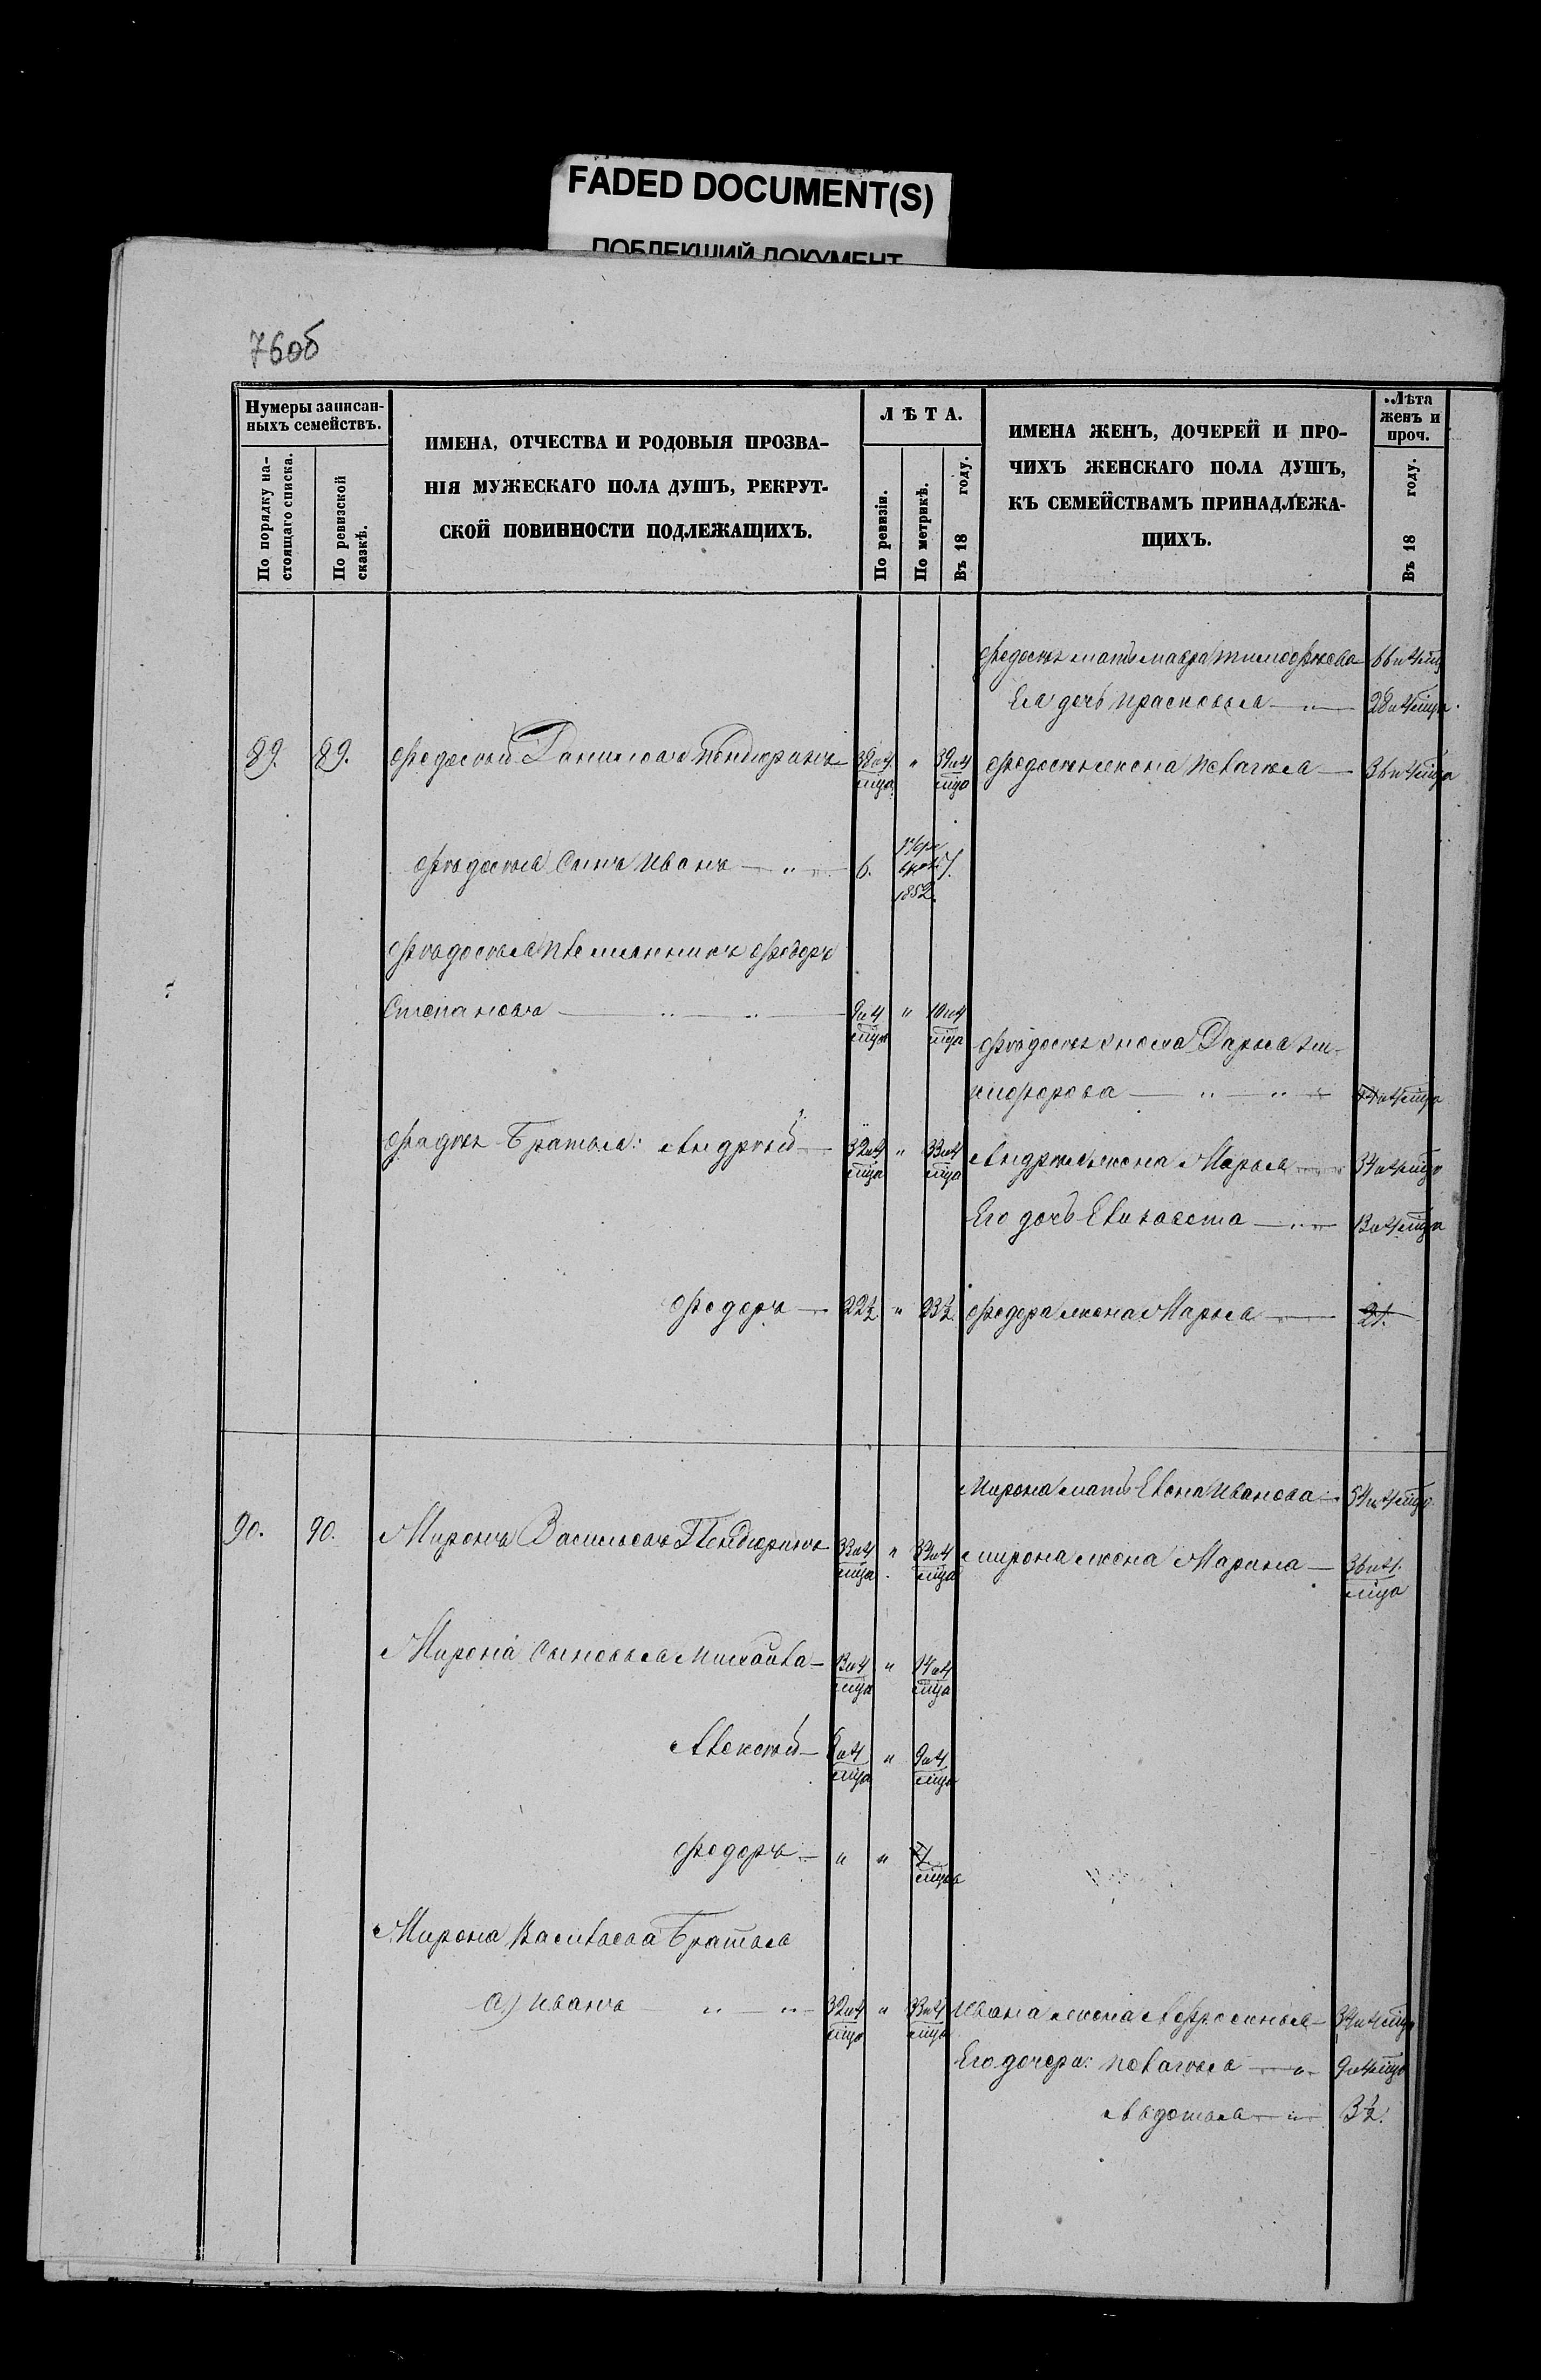 FADED DOCUMENT(S)
ПОБЛЕКШИЙ ДОКУМЕНТ
76об
Нумеры записан-
ныхъ семействъ.
По порядку на-
стоящаго списка.
По ревизской
сказкѣ.
ИМЕНА, ОТЧЕСТВА И РОДОВЫЯ ПРОЗВА-
НІЯ МУЖЕСКАГО ПОЛА ДУШЪ, РЕКРУТ-
СКОЙ ПОВИННОСТИ ПОДЛЕЖАЩИХЪ.
ЛѢТА.
По ревизіи.
По метрикѣ.
Въ 18 году.
ИМЕНА ЖЕНЪ, ДОЧЕРЕЙ И ПРО-
ЧИХЪ ЖЕНСКАГО ПОЛА ДУШЪ,
КЪ СЕМЕЙСТВАМЪ ПРИНАДЛЕЖА-
ЩИХЪ.
Лѣта
женъ и
проч.
Въ 18 году.
мать Мавра Тимофѣева 66 и 4 мца
Ея дочь Прасковья 28 и 4 мца
89. 89. Федосѣй Даниловъ 38 и 4 мца " 39 и 4 мца жена Пелагѣя 36 и 4 мца
Сынъ Иванъ 6. 1852. 7.
племянникъ Федоръ
Степановъ 9 и 4 мца " 10 и 4 мца
Дарья Ни-
кифорова
Братья: Андрѣй 32 и 4 мца " 33 и 4 мца Андрея жена Марья 34 и 4 мца
Его дочь Елизавета 13 и 4 мца
Федоръ 22½ " 23½ Федора жена Марья 21.
Мирона мать Елена Иванова 54 и 4 мца
90. 90. Миронъ Васильевъ 33 и 4 мца " 34 и 4 мца Мирона жена Марина 36 и 4 мца
Мирона сыновья Михайла 13 и 4 мца " 14 и 4 мца
Алексѣй 8 и 4 мца " 9 и 4 мца
Федоръ " "
Мирона Васильева Братья
а) Иванъ 32 и 4 мца " 33 и 4 мца Ивана жена Афросинья 34 и 4 мца
Его дочери: Пелагѣя 9 и 4 мца
Авдотья 3½.